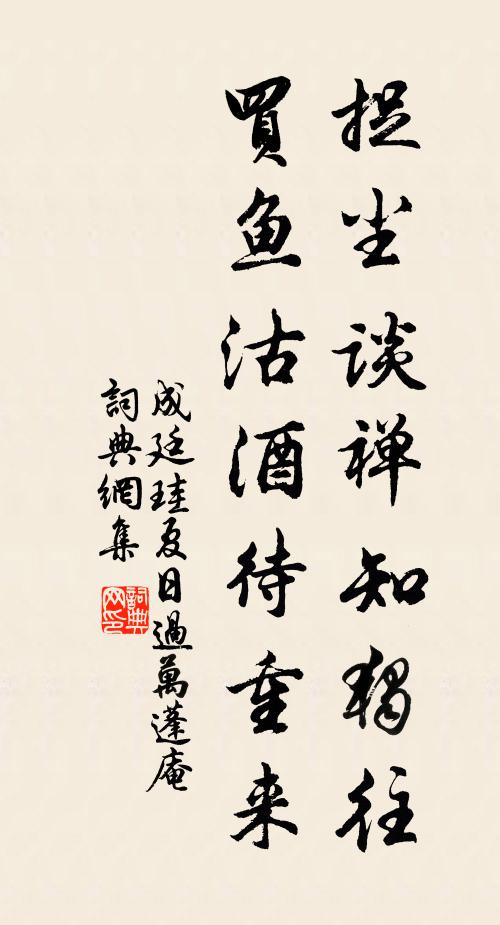 捉尘谈禅知獨往
買鱼沽酒待重来
成廷珪夏日過萬蓬庵
詞典網集
詞典网印